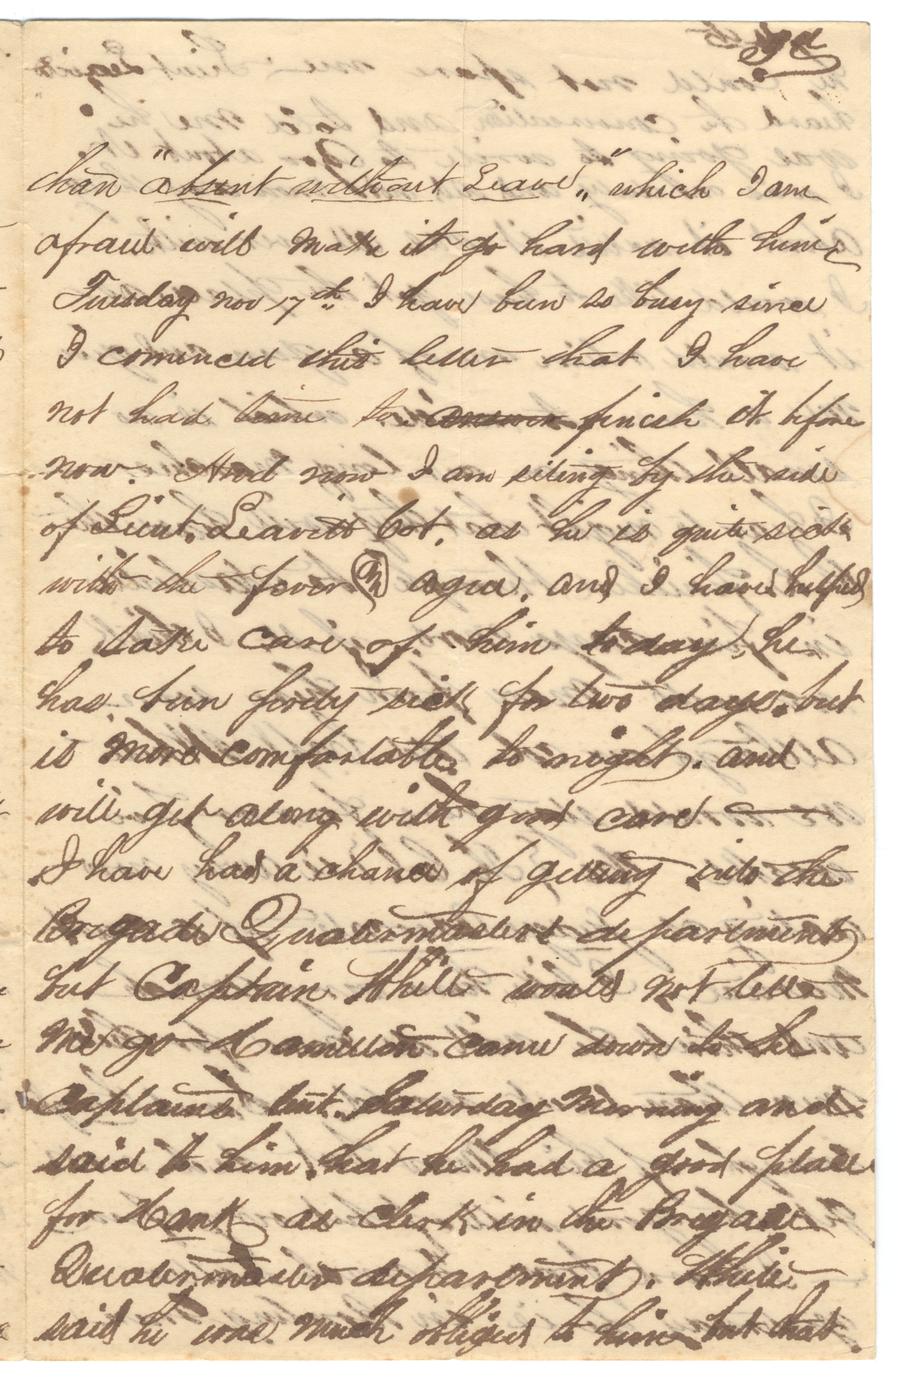 than "absent without Leave", which I am
afraid will make it go hard with him.
Tuesday nov 17th I have been so busy since
I comenced this letter that I have
not had time to answer finish it before
now. And now I am siting by the side
of Lieut. Leavitt Cot, as he is quite sick
with the fever & ague. and I have helped
to take care of him to day, he
has been prety sick for two days. but
is more comfortable to night. and
will get along with good care —
I have had a chance of getting into the
Brigade Quatermasters department
but Captain White would not let
me go Hamilton came down to the
Captains tent. Saturday Morning and
said to him that he had a good place
for Hank as clerk in the Brigade
Quatermaster department. White
said he was much obliged to him but that